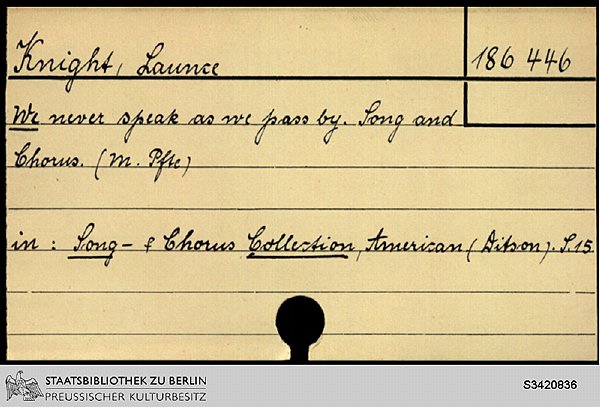 Knight, Launce
186 446
We never speak as we pass by. Song and
Chorus. (M. Pfte)
in: Song- & Chorus Collection, American (Ditson). S. 15
STAATSBIBLIOTHEK ZU BERLIN
PREUSSISCHER KULTURBESITZ
S3420836